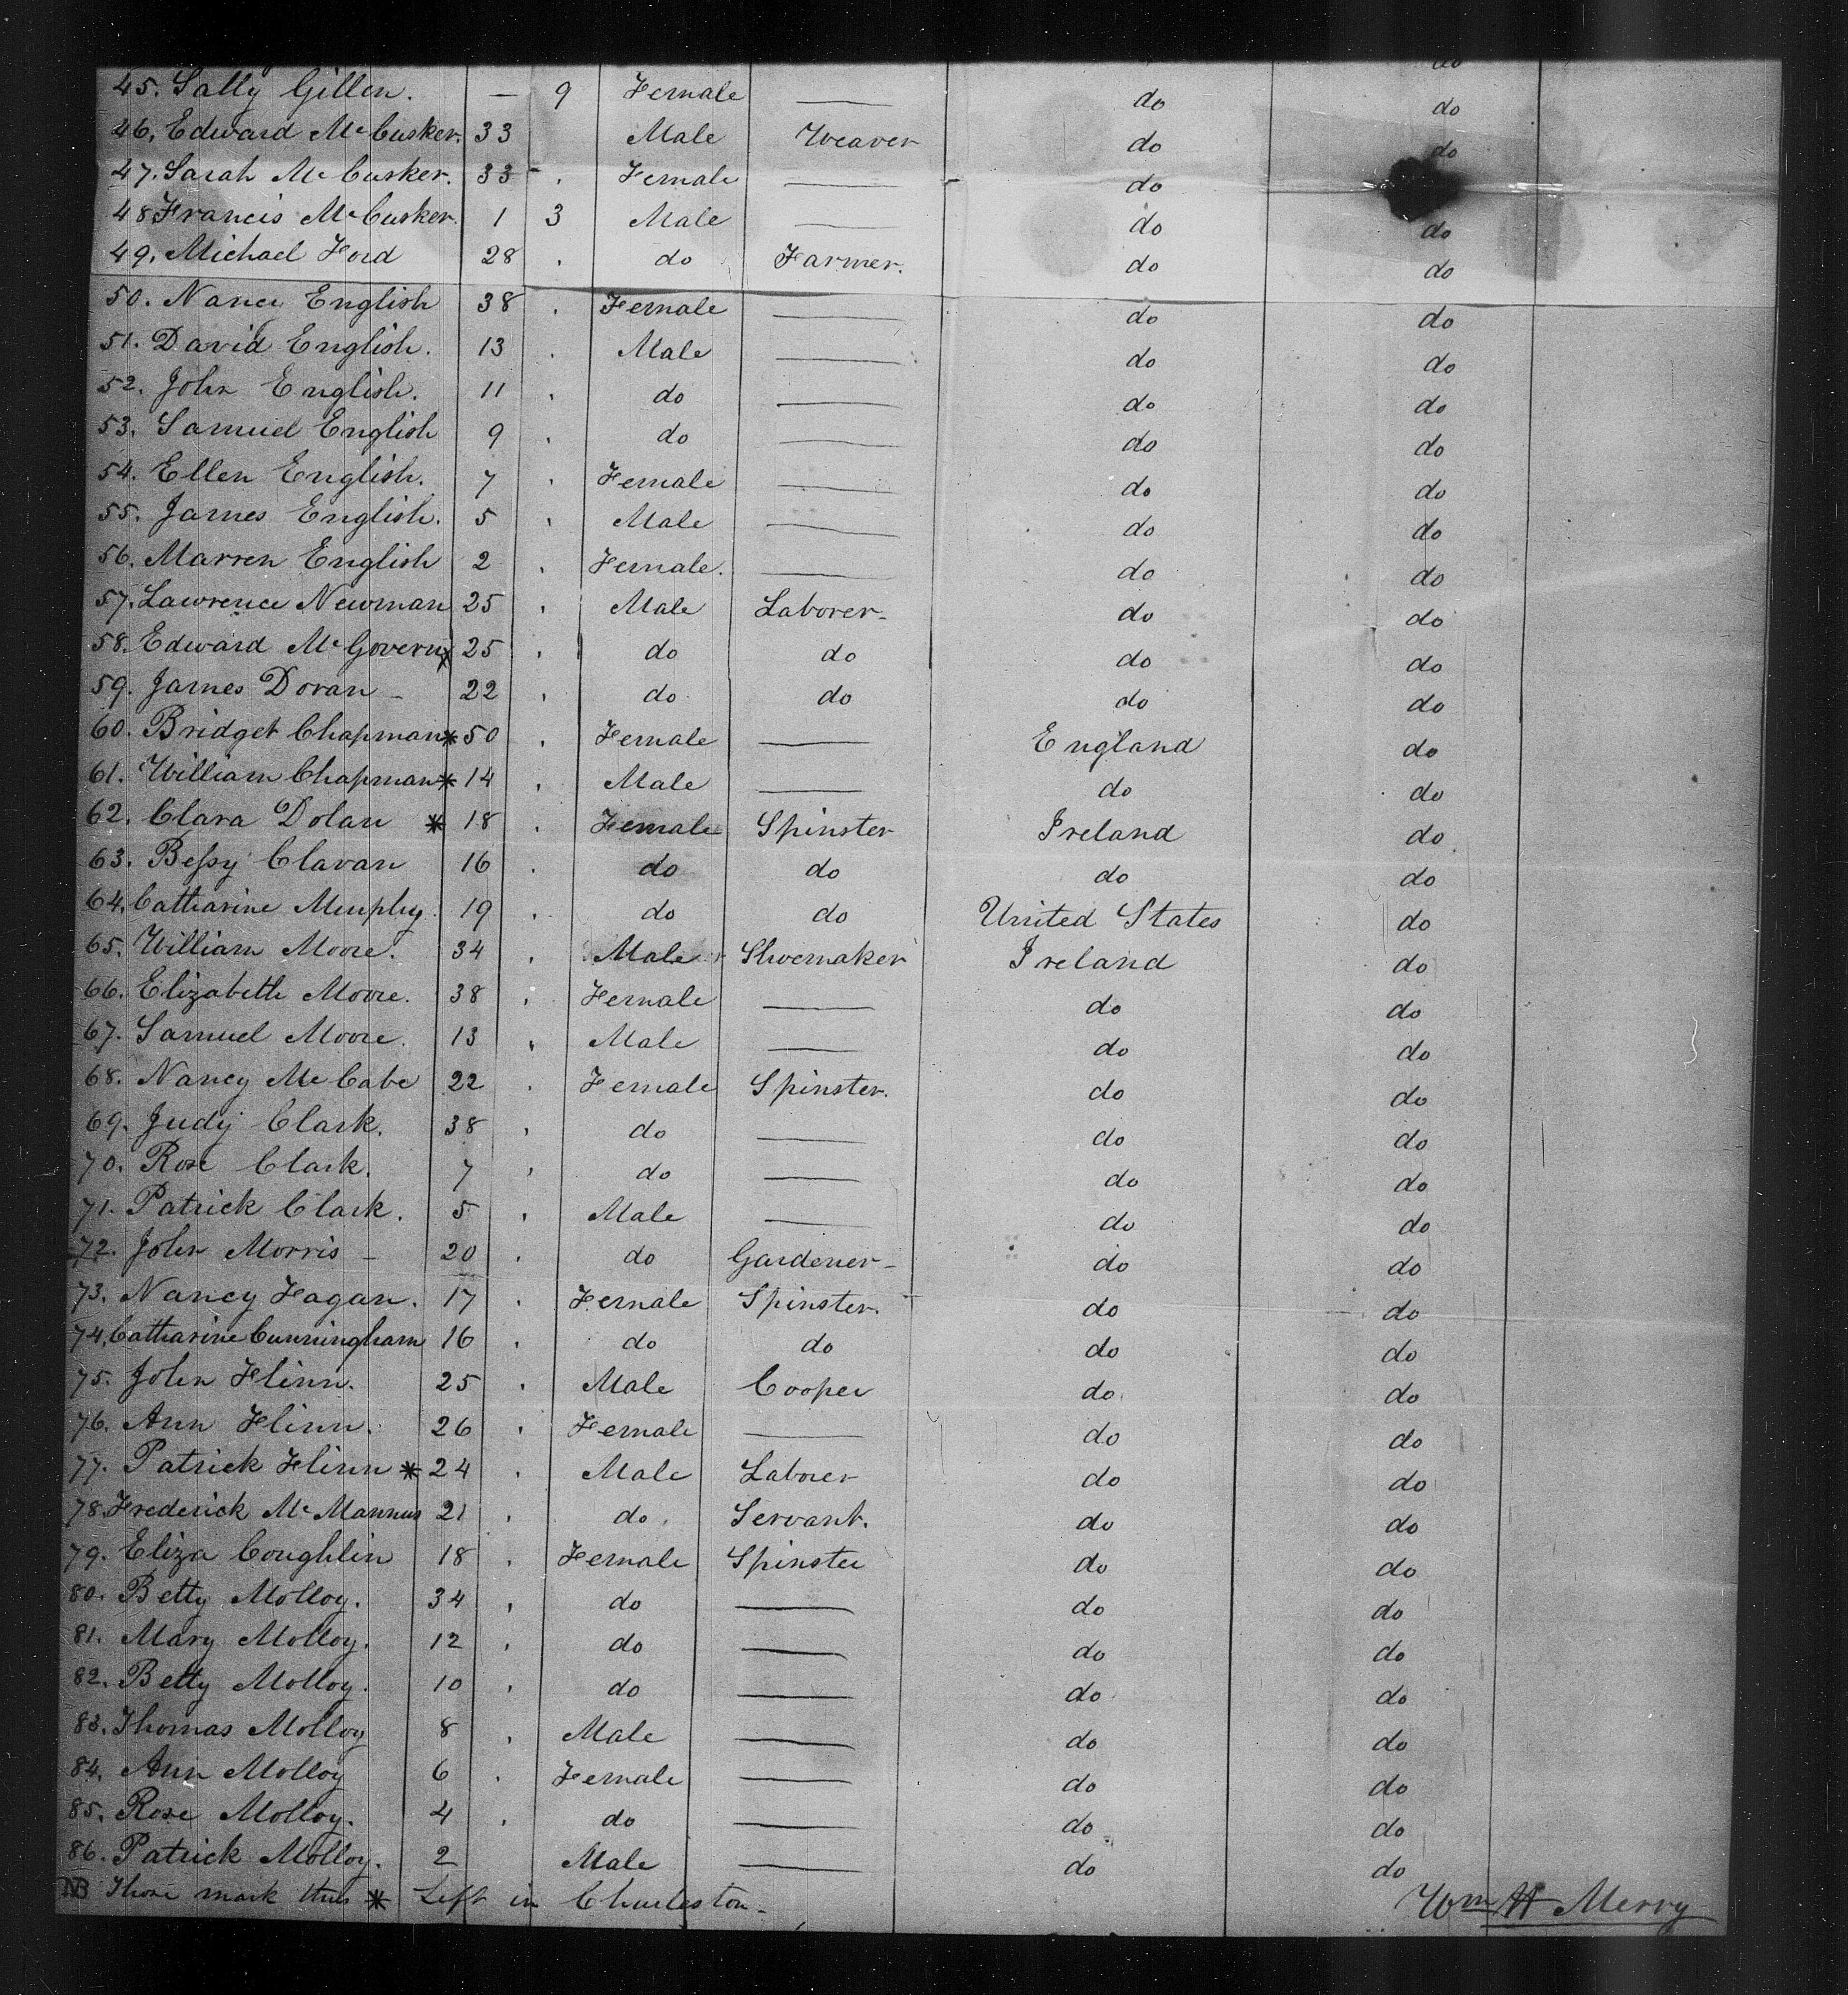 do
45. Sally Gillen. — 9 Female — do do
46. Edward McCusker. 33 Male Weaver do do
47. Sarah McCusker. 33 . Female — do
48 Francis McCusker. 1 3 Male — do do
49. Michael Ford 28 . do Farmer. do do
50. Nancy English 38 . Female — do do
51. David English. 13 . Male — do do
52. John English. 11 . do — do do
53. Samuel English 9 . do — do do
54. Ellen English. 7 . Female — do do
55. James English. 5 . Male — do do
56. Marren English 2 . Female. — do do
57. Lawrence Newman 25 . Male Laborer do do
58. Edward McGovern * 25 . do do do do
59. James Doran – 22 . do do do do
60. Bridget Chapman * 50 . Female — England do
61. William Chapman * 14 . Male — do do
62. Clara Dolan * 18 . Female Spinster Ireland do
63. Bessy Clavan 16 . do do do do
64. Catharine Murphy. 19 . do do United States do
65. William Moore. 34 . Male Shoemaker Ireland do
66. Elizabeth Moore. 38 . Female — do do
67. Samuel Moore. 13 . Male — do do
68. Nancy McCabe 22 . Female Spinster. do do
69. Judy Clark. 38 . do — do do
70. Rose Clark. 7 . do — do do
71. Patrick Clark. 5 . Male — do do
72. John Morris – 20 . do Gardener – do do
73. Nancy Fagan. 17 . Female Spinster. do do
74. Catharine Cunningham 16 . do do do do
75. John Flinn. 25 . Male Cooper do do
76. Ann Flinn. 26 . Female — do do
77. Patrick Flinn * 24 . Male Laborer do do
78. Frederick McMannus 21 . do. Servant. do do
79. Eliza Coughlin 18 . Female Spinster do do
80. Betty Molloy. 34 . do — do do
81. Mary Molloy. 12 . do — do do
82. Betty Molloy. 10 . do — do do
83. Thomas Molloy 8 . Male — do do
84. Ann Molloy 6 . Female — do do
85. Rose Molloy. 4 . do — do do
86. Patrick Molloy. 2 Male — do do
NB Those mark thus * Left in Charleston – Wm H Merry